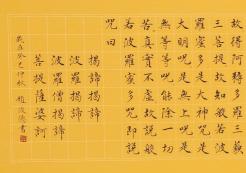 故得阿耨多羅三藐
三菩提故知般若波
羅蜜多是大神咒是
大明咒是無上咒是
無等等咒能除一切
苦真實不虛故說般
若波羅蜜多咒即說
咒曰
揭諦揭諦
波羅揭諦
波羅僧揭諦
菩提薩婆訶
歲在癸巳仲秋 書